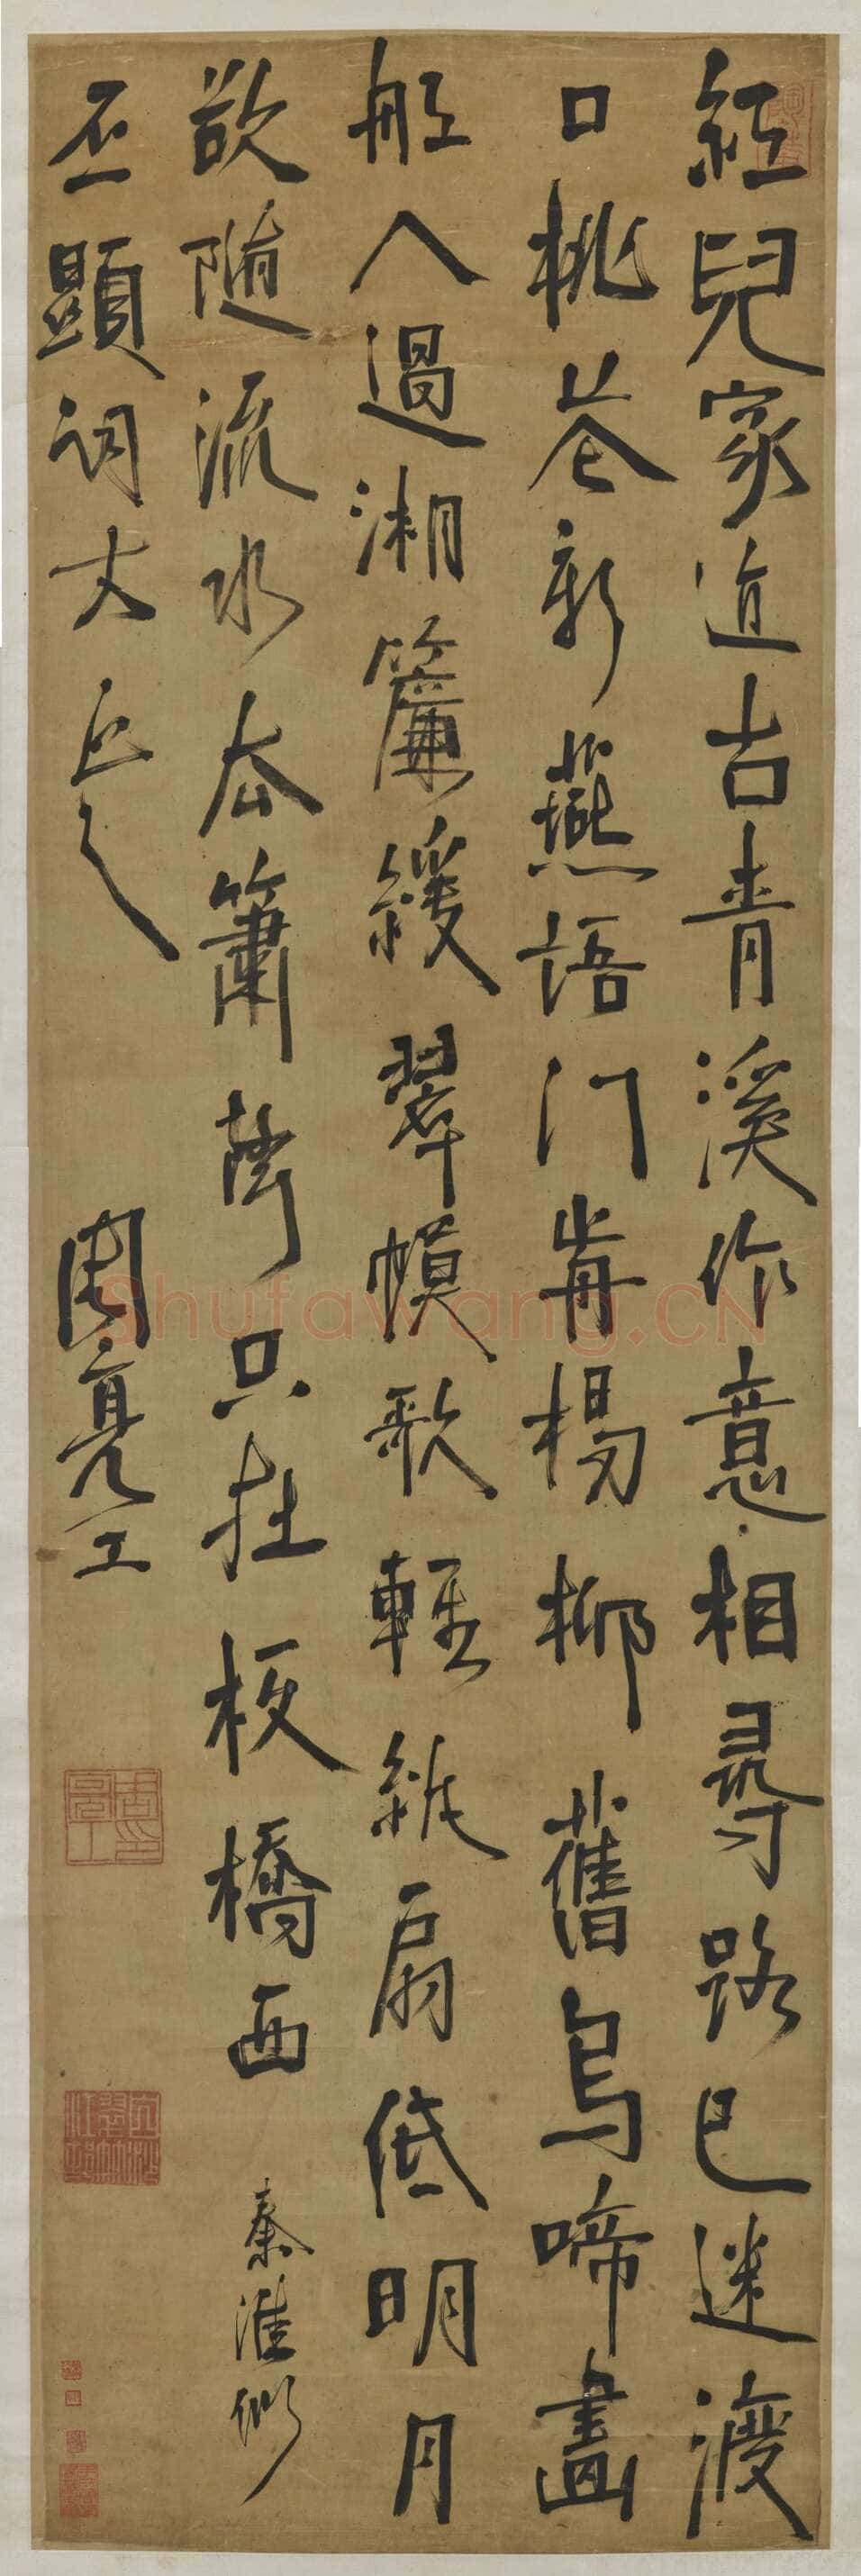 紅兒家近古青溪作意相尋路已迷渡
口桃花新燕語門歬楊柳舊烏啼畫
舡人過湘簾緩翠幙歌輕紈扇低明月
欲隨流水去簫聲只在板橋西 秦淮似
丕顯詞丈正之 周亮工
Shufawang.CN